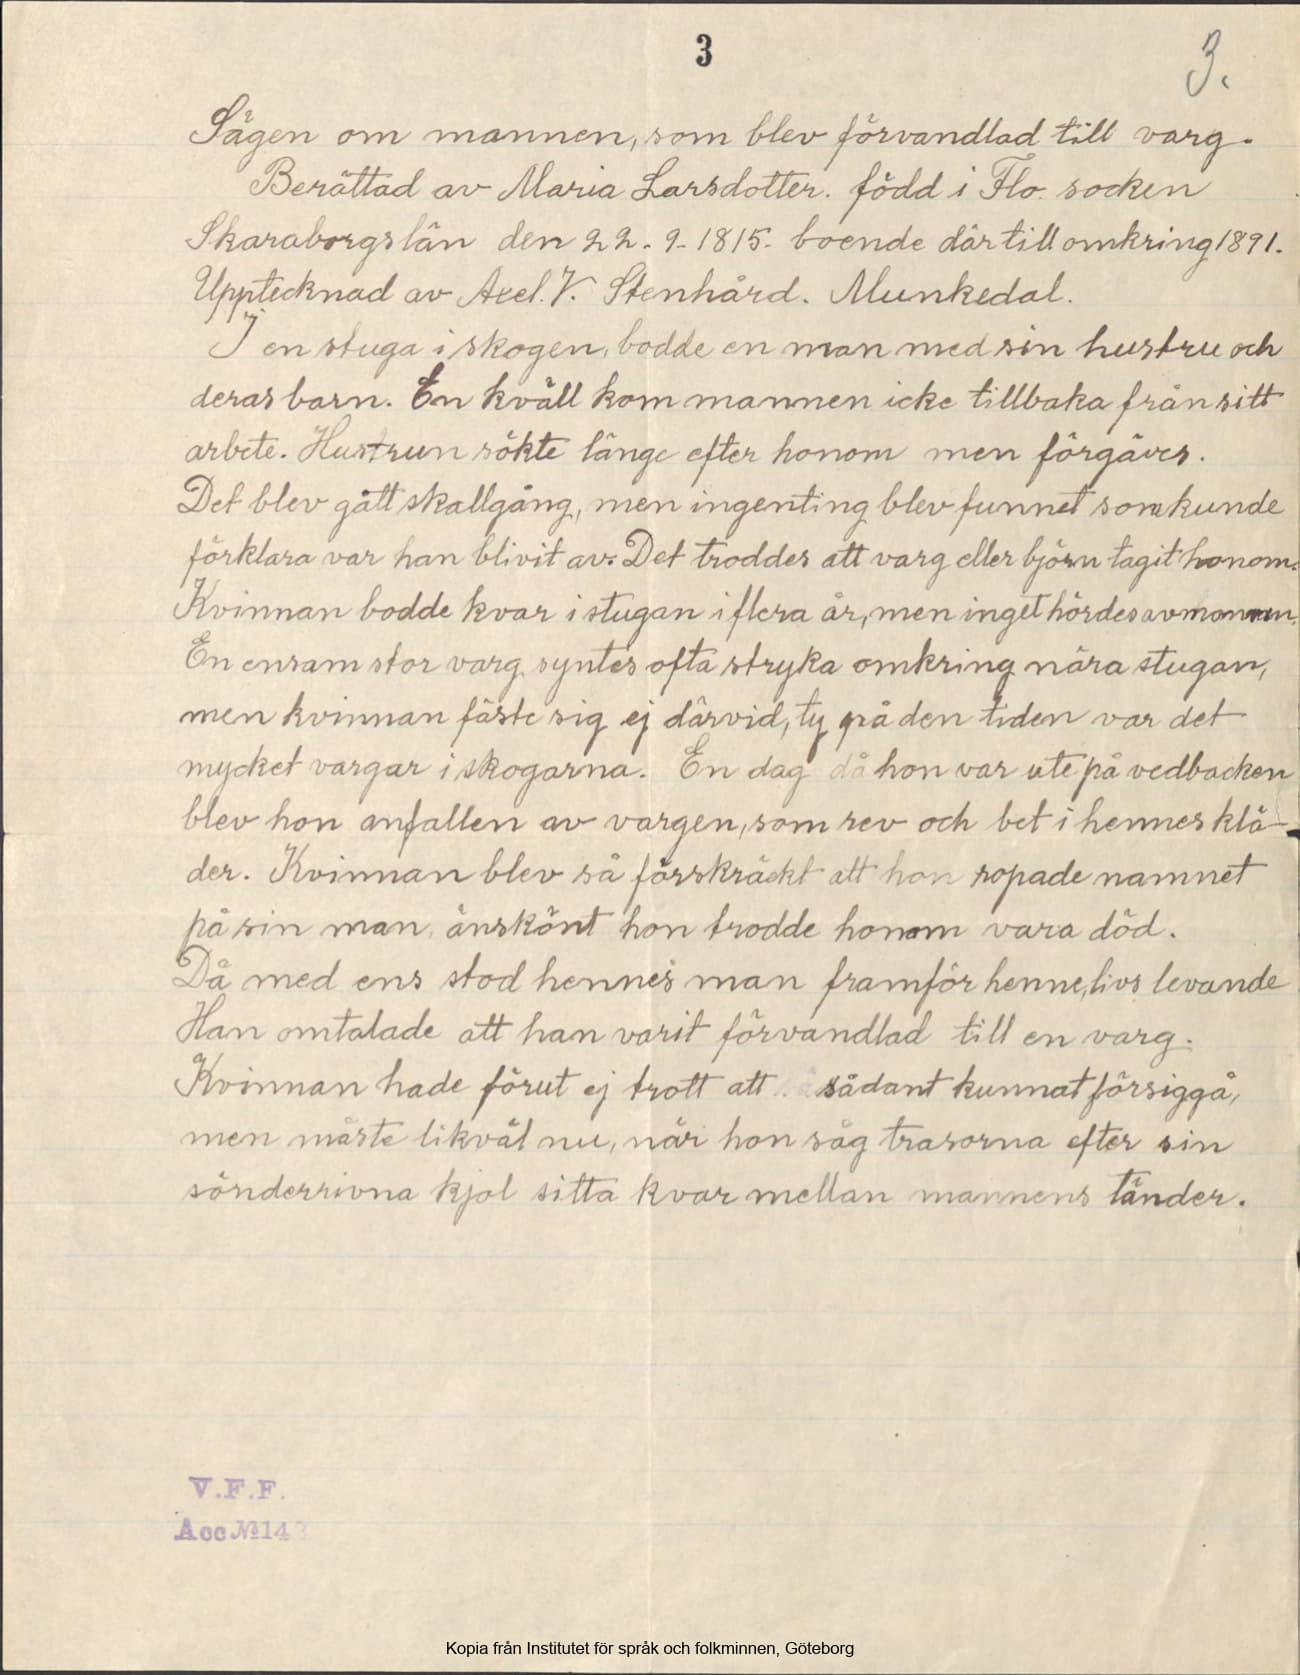 3
3.
Sägen om mannen, som blev förvandlad till varg.
Berättad av Maria Larsdotter. född i Flo. socken
Skaraborgslän den 22.9.1815. boende där till omkring 1891.
Upptecknad av Axel. V. Stenhård. Munkedal.
I en stuga i skogen, bodde en man med sin hustru och
deras barn. En kväll kom mannen icke tillbaka från sitt
arbete. Hustrun sökte länge efter honom men förgäves.
Det blev gått skallgång, men ingenting blev funnet som kunde
förklara var han blivit av. Det troddes att varg eller björn tagit honom.
Kvinnan bodde kvar i stugan i flera år, men inget hördes av mannen.
En ensam stor varg syntes ofta stryka omkring nära stugan,
men kvinnan fäste sig ej därvid, ty på den tiden var det
mycket vargar i skogarna. En dag då hon var ute på vedbacken
blev hon anfallen av vargen, som rev och bet i hennes klä-
der. Kvinnan blev så förskräckt att hon ropade namnet
på sin man, änskönt hon trodde honom vara död.
Då med ens stod hennes man framför henne, livs levande
Han omtalade att han varit förvandlad till en varg.
Kvinnan hade förut ej trott att sådant kunnat försiggå,
men måste likväl nu, när hon såg trasorna efter sin
sönderrivna kjol sitta kvar mellan mannens tänder.
V.F.F.
Acc №143
Kopia från Institutet för språk och folkminnen, Göteborg